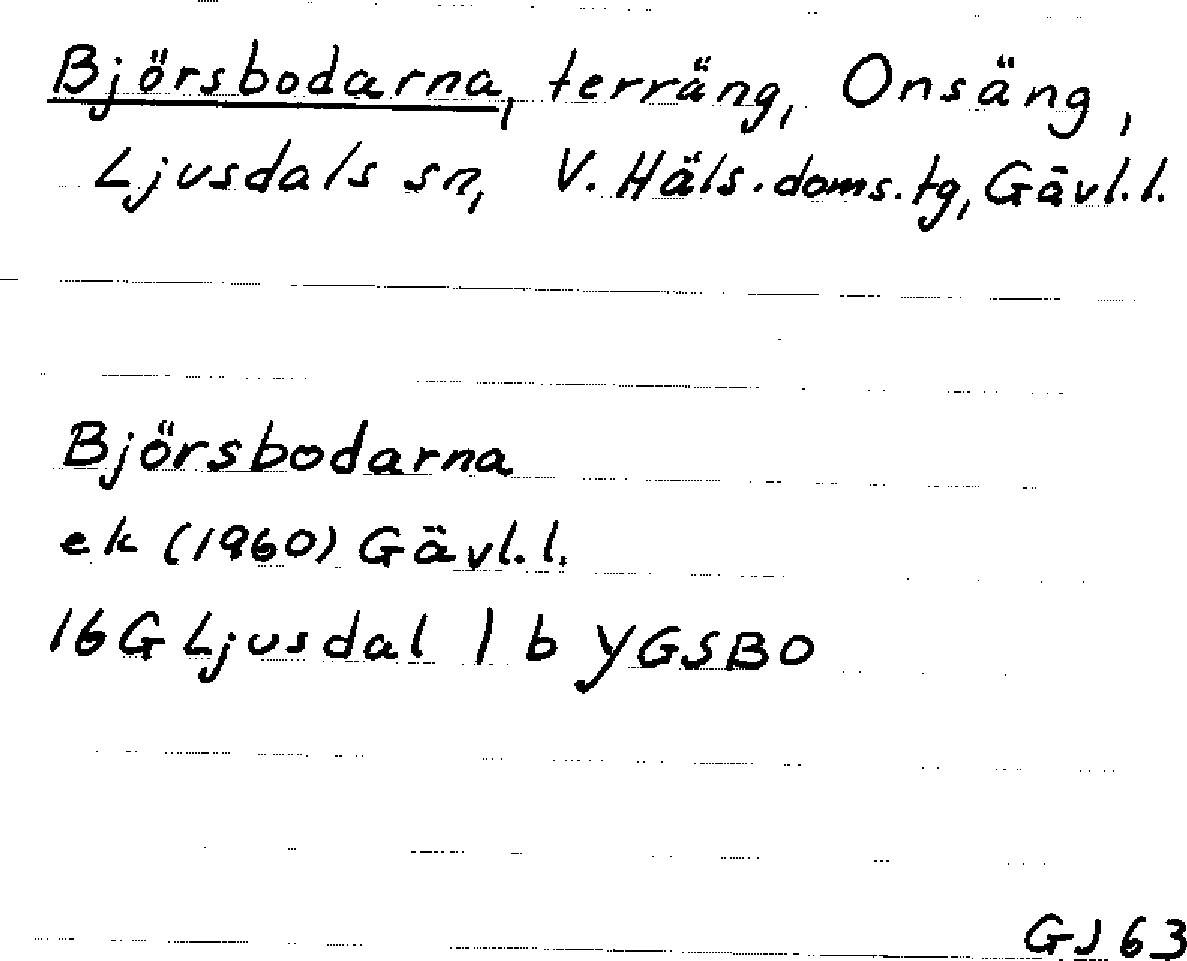 Björsbodarna, terräng, Onsäng,
Ljusdals sn, V. Häls. doms. tg, Gävl. l.
Björsbodarna
ek (1960) Gävl. l.
16G Ljusdal 1 b YGSBO
GJ 63